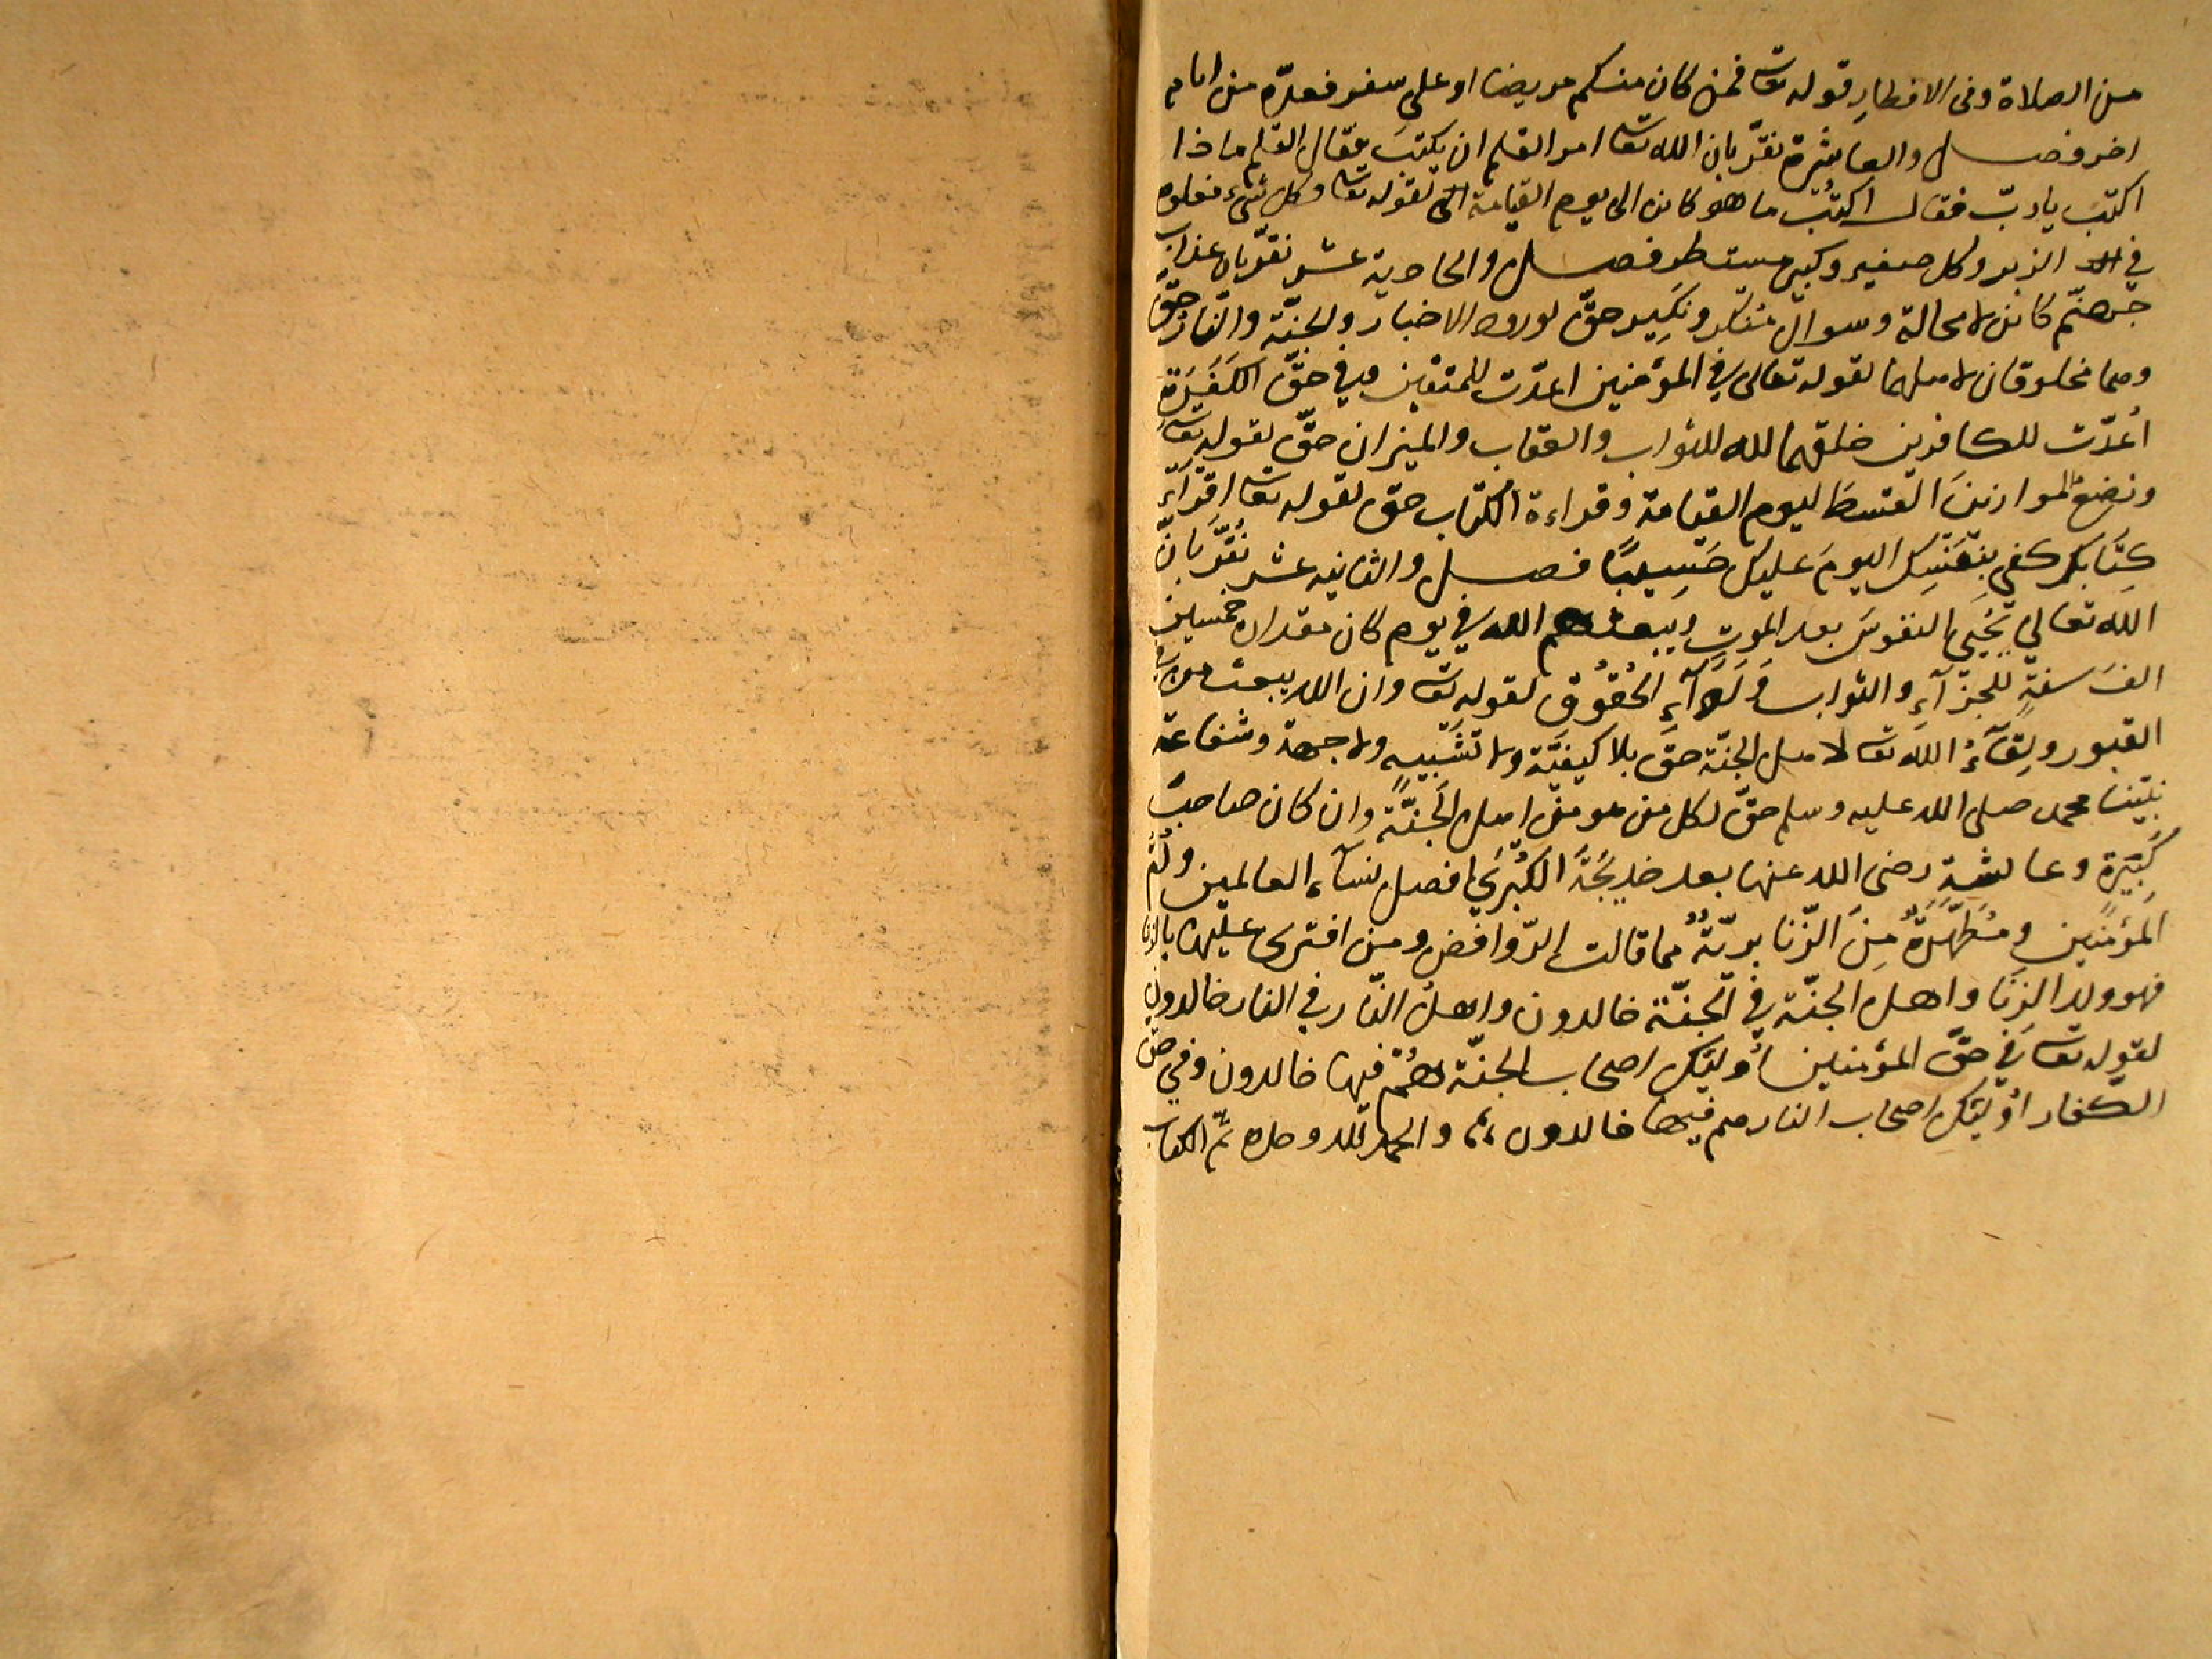 من الصلاة وفى الافطارِ قوله تعا فمن كان منكم مريضا او على سفر فعدّة من ايام
اخر فصل والعاشرة نقرّ بان الله تعا امر القلم ان يكتبَ فقال القلم ماذا
اكتب يا ربّ فقال اكتُبْ ما هو كائن الى يوم القيامة لقوله تعا وكل شىء فعلوه
في الزبر وكل صغير وكبير مستطر فصل والحادية عشر نقرّ بان عذاب
جهنّم كائن لا محالة وسوال مُنكر ونَكِير حقّ لورود الاخبار والجنّة والنّار حقّ
وهما مخلوقان لاهلهما لقوله تعالى في المؤمنين اعدّت للمتقين وفي حقّ الكَفَرَةِ
اُعدّت للكافرين خلقهما الله للثواب والعقاب والميزان حقّ لقوله تعا
ونضعُ الموازينَ القسطَ ليوم القيامة وقراءة الكتاب حق لقوله تعا اقرأ
كِتَابَكَ كفى بِنَفْسِكَ اليومَ عليك حَسِيبًا فصل والثانيه عشر نُقرّ بانّ
الله تعالي يُحْيِي النفوسَ بعد الموتِ ويبعثهم الله في يوم كان مقداره خمسين
الفَ سنةٍ للجزآءِ والثواب وَلِأَدَآءِ الحُقُوقِ لقوله تعا وان الله يبعث من في
القبور ولِقَآءُ اللهِ تعا لاهل الجنّة حقّ بلا كيفيّة ولا تشبيهٍ ولا جهة وشفاعة
نبيّنا محمد صلى الله عليه وسلم حقّ لكل من هو من اهل الجَنّةِ وان كان صاحبَ
كَبِيَرةٍ وعائشةِ رضى الله عنها بعد خديجَةَ الكُبْرَي افضل نسآء العالمين واُمّ
المؤمنين ومُطَهّرَةٌ مِنَ الزّنا بريّةٌ مما قالت الرّوافض ومن افترى عليها بالزنا
فهو ولد الزِنَا واهل الجنّة في الجنّة خالدون واهلُ النّار في النار خالدون
لقوله تعا في حقّ المؤمنين اُولَئِكَ اصحاب الجنّة هُمْ فيها خالدون وفي حقّ
الكفار اُولئِكَ اصحاب النار هم فيها خالدون ،،، والحمد لله وحده تمّ الكتاب